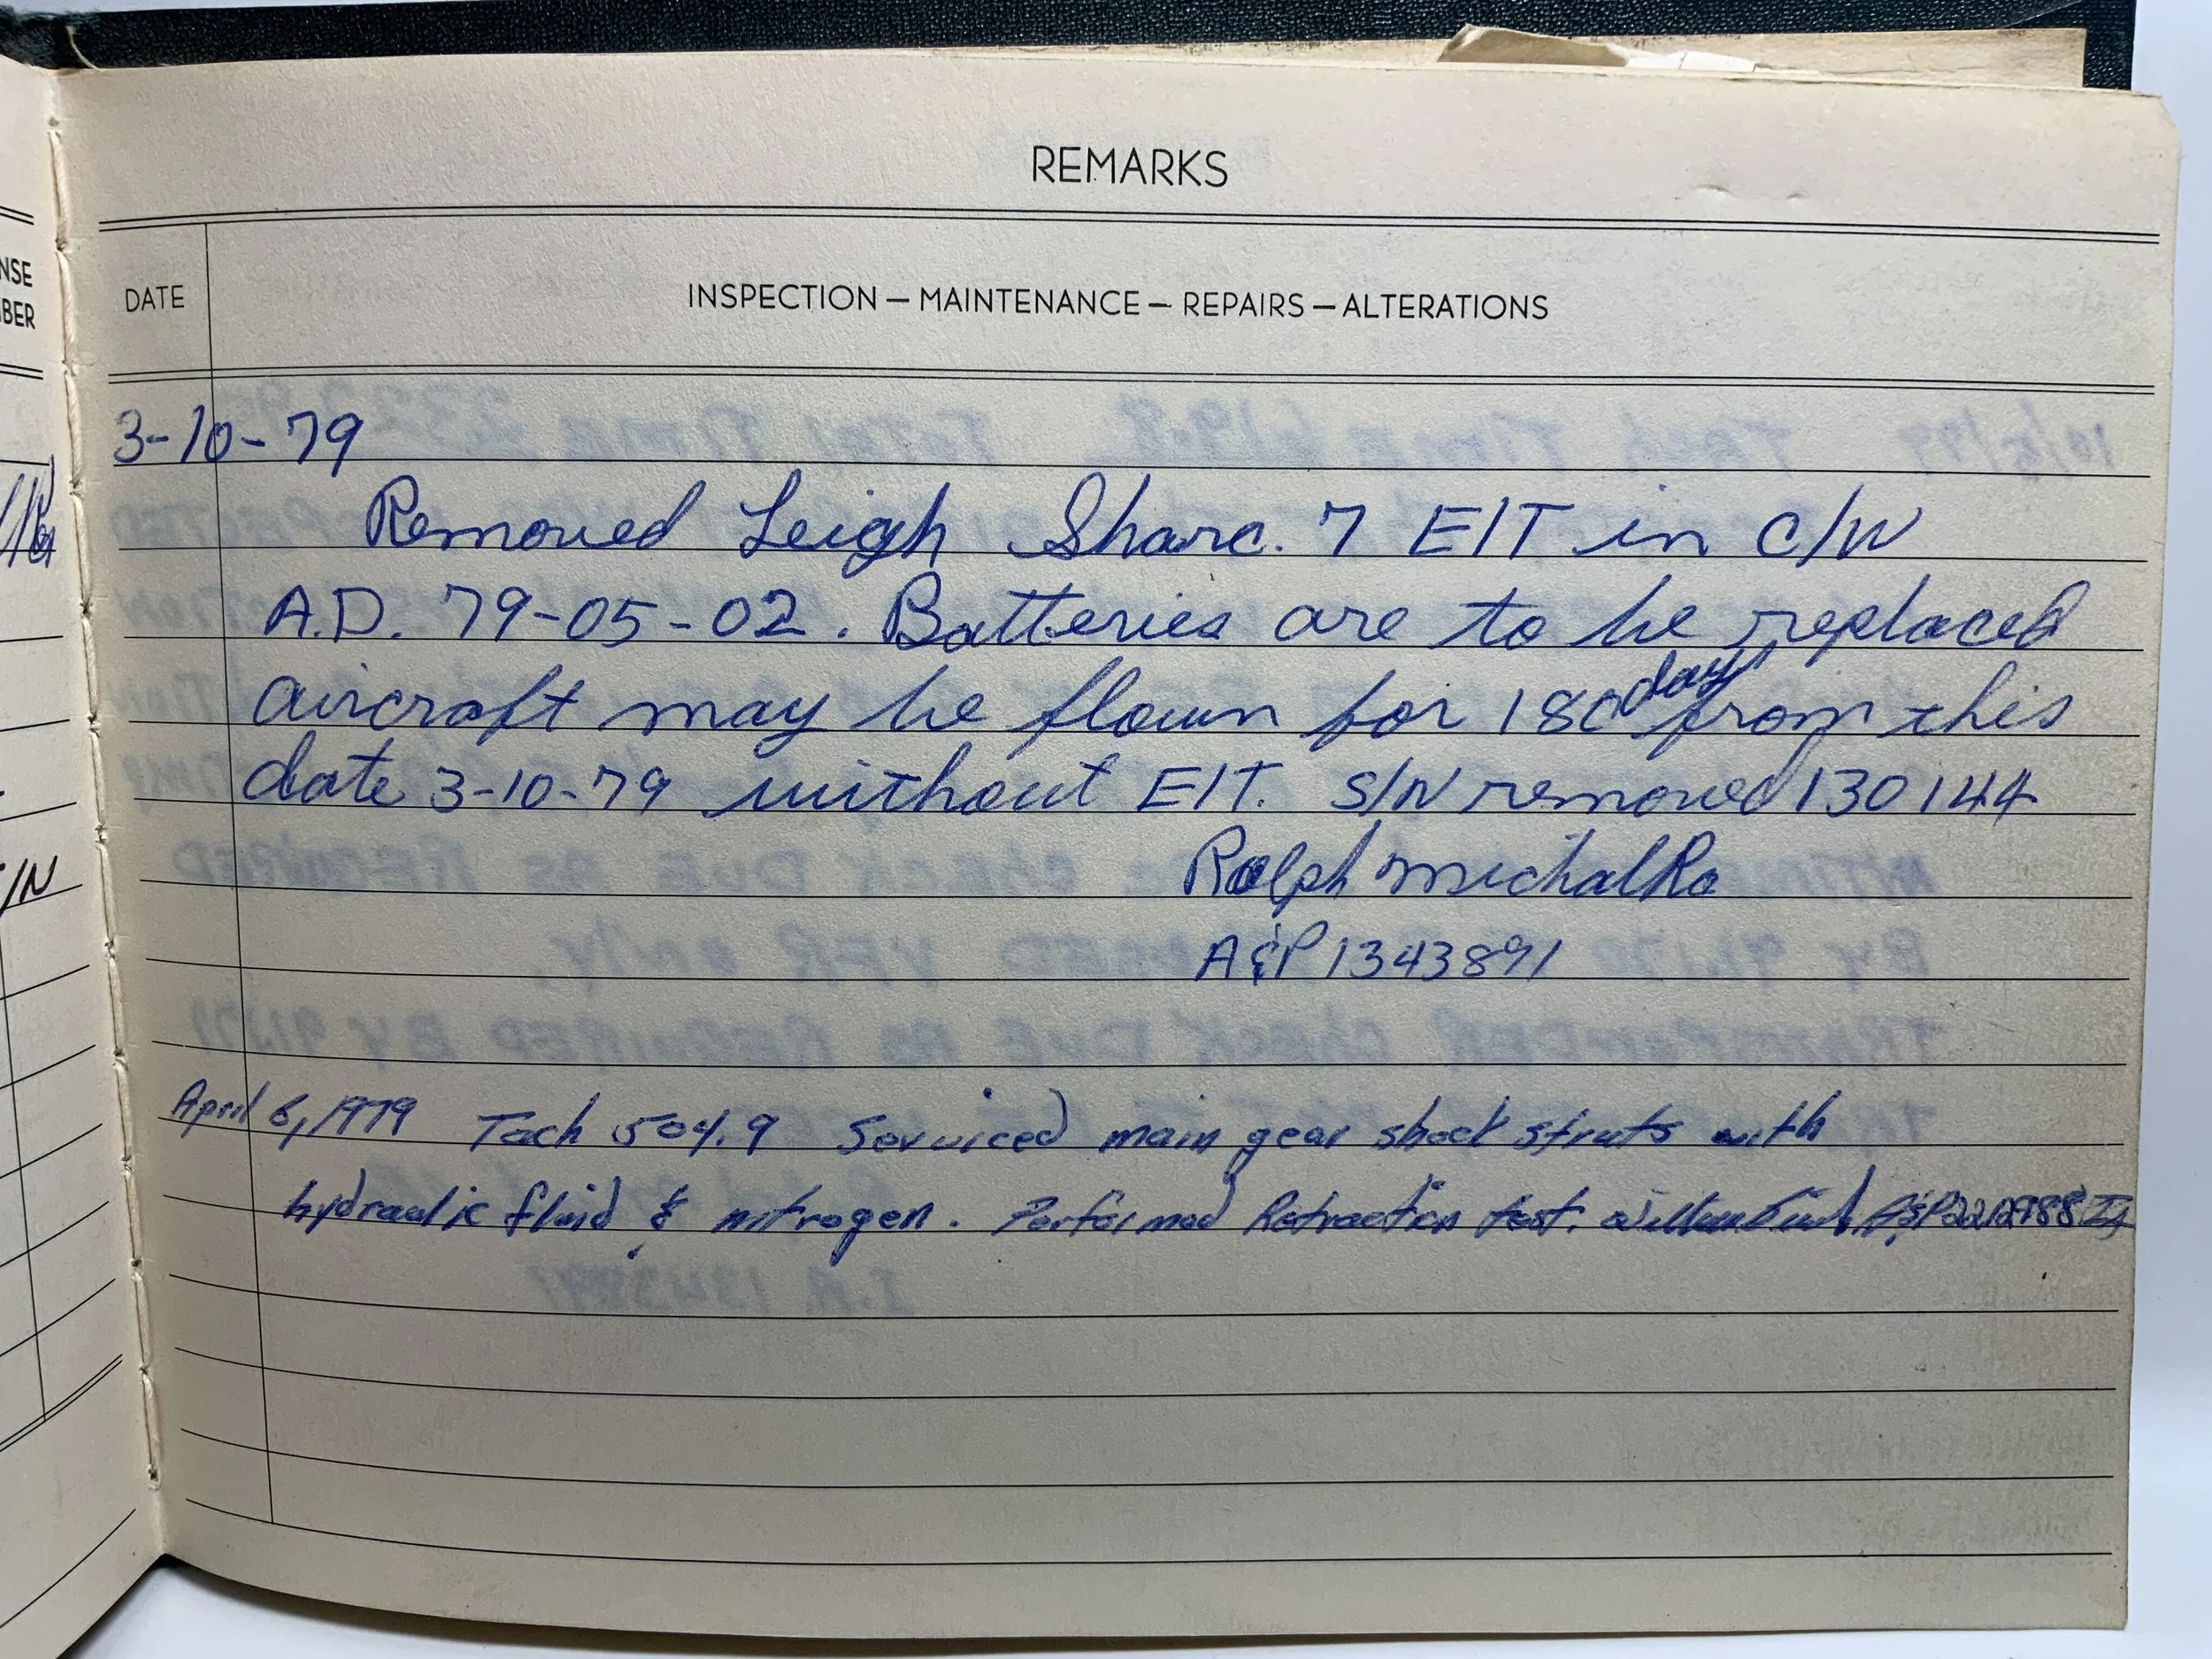 REMARKS
NSE
BER
DATE
INSPECTION — MAINTENANCE — REPAIRS — ALTERATIONS
3-10-79
Removed Leigh Sharc. 7 E/T in C/W
A.D. 79-05-02. Batteries are to be replaced
aircraft may be flown for 180 days from this
date 3-10-79 without E/T. S/N removed 130144
/N
Ralph Michalka
A&P 1343891
April 6, 1979 Tach 504.9 Serviced main gear shock struts with
hydraulic fluid & nitrogen. Performed Retraction test.